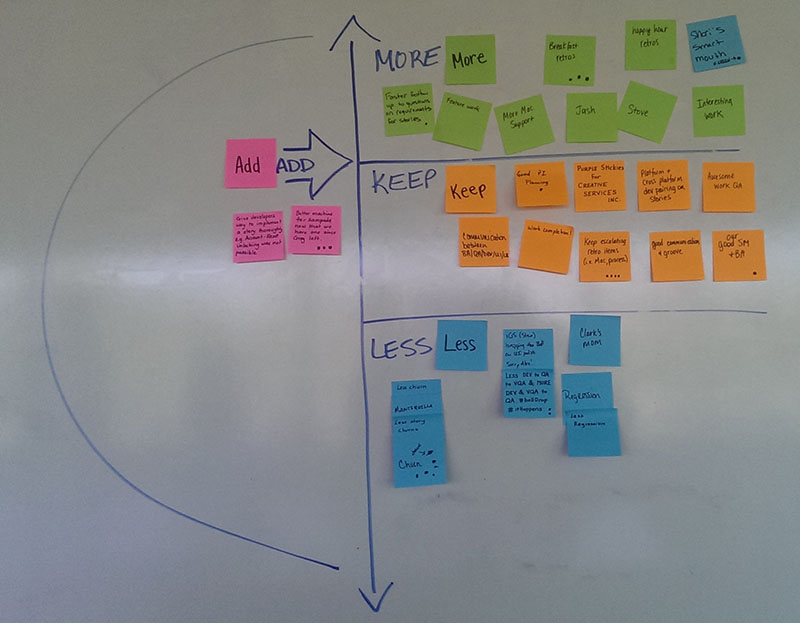 MORE
More
Breakfast
retros
happy hour
retros
Shari's
smart
mouth
Faster follow
up to questions
on requirements
for stories
Feature work
More Mac
Support
Josh
Steve
Interesting
work
Add
ADD
Give developers
way to implement
a story thoroughly
E.g. Account Reset
Unlocking was not
possible
Better machine
for
now that we
have one since
Greg left.
KEEP
Keep
Good PI
Planning
PURPLE STICKIES
FOR
CREATIVE
SERVICES
INC.
Platform +
Cross platform
dev pairing on
Stories
Awesome
Work QA
Communication
between
BA/QA/Dev/UI/UX
Work completion!
Keep escalating
retro items
(i.e. Mac, process)
good communication
& groove
Our
good SM
+ BA
LESS
Less
iOS (Steve)
dropping the Ball
on UI polish
Sorry, Abi!
LESS DEV to QA
to VQA & MORE
DEV & VQA to
QA #ballDrop
#itHappens
Clark's
MDM
Regression
Less
Regression
Less churn
Less story
Churn